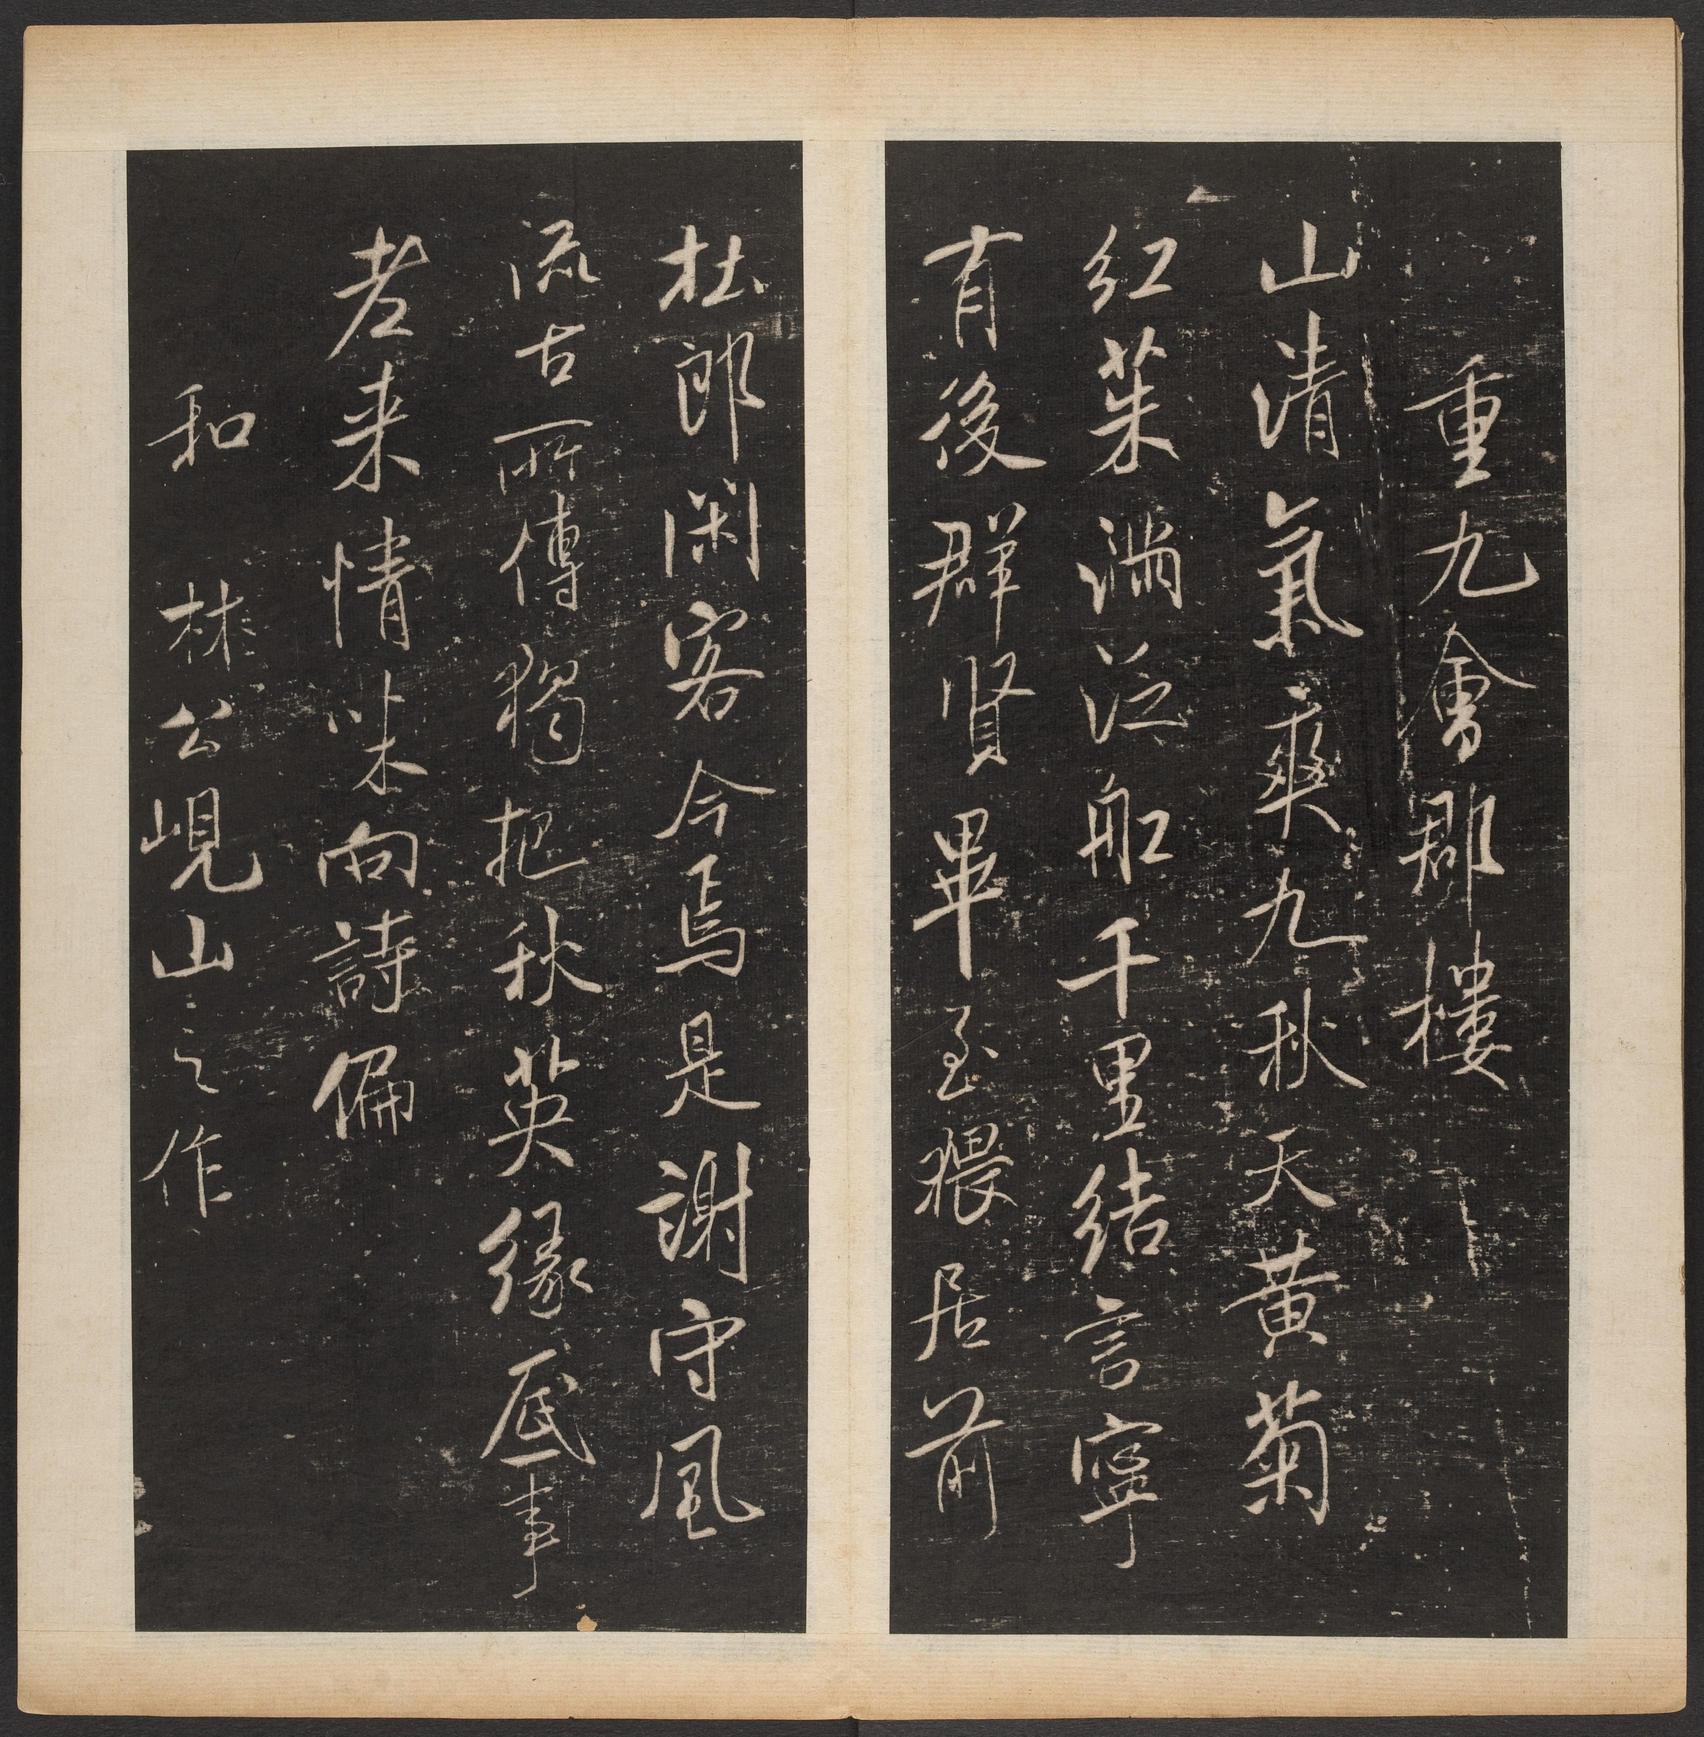 重九會郡樓
山清氣爽九秋天黃菊
紅茱滿泛船千里結言寧
有後群賢畢至猥居前
杜郎閑客今焉是謝守風
流古所傳獨把秋英緣底事
老来情味向詩偏
和　林公峴山之作